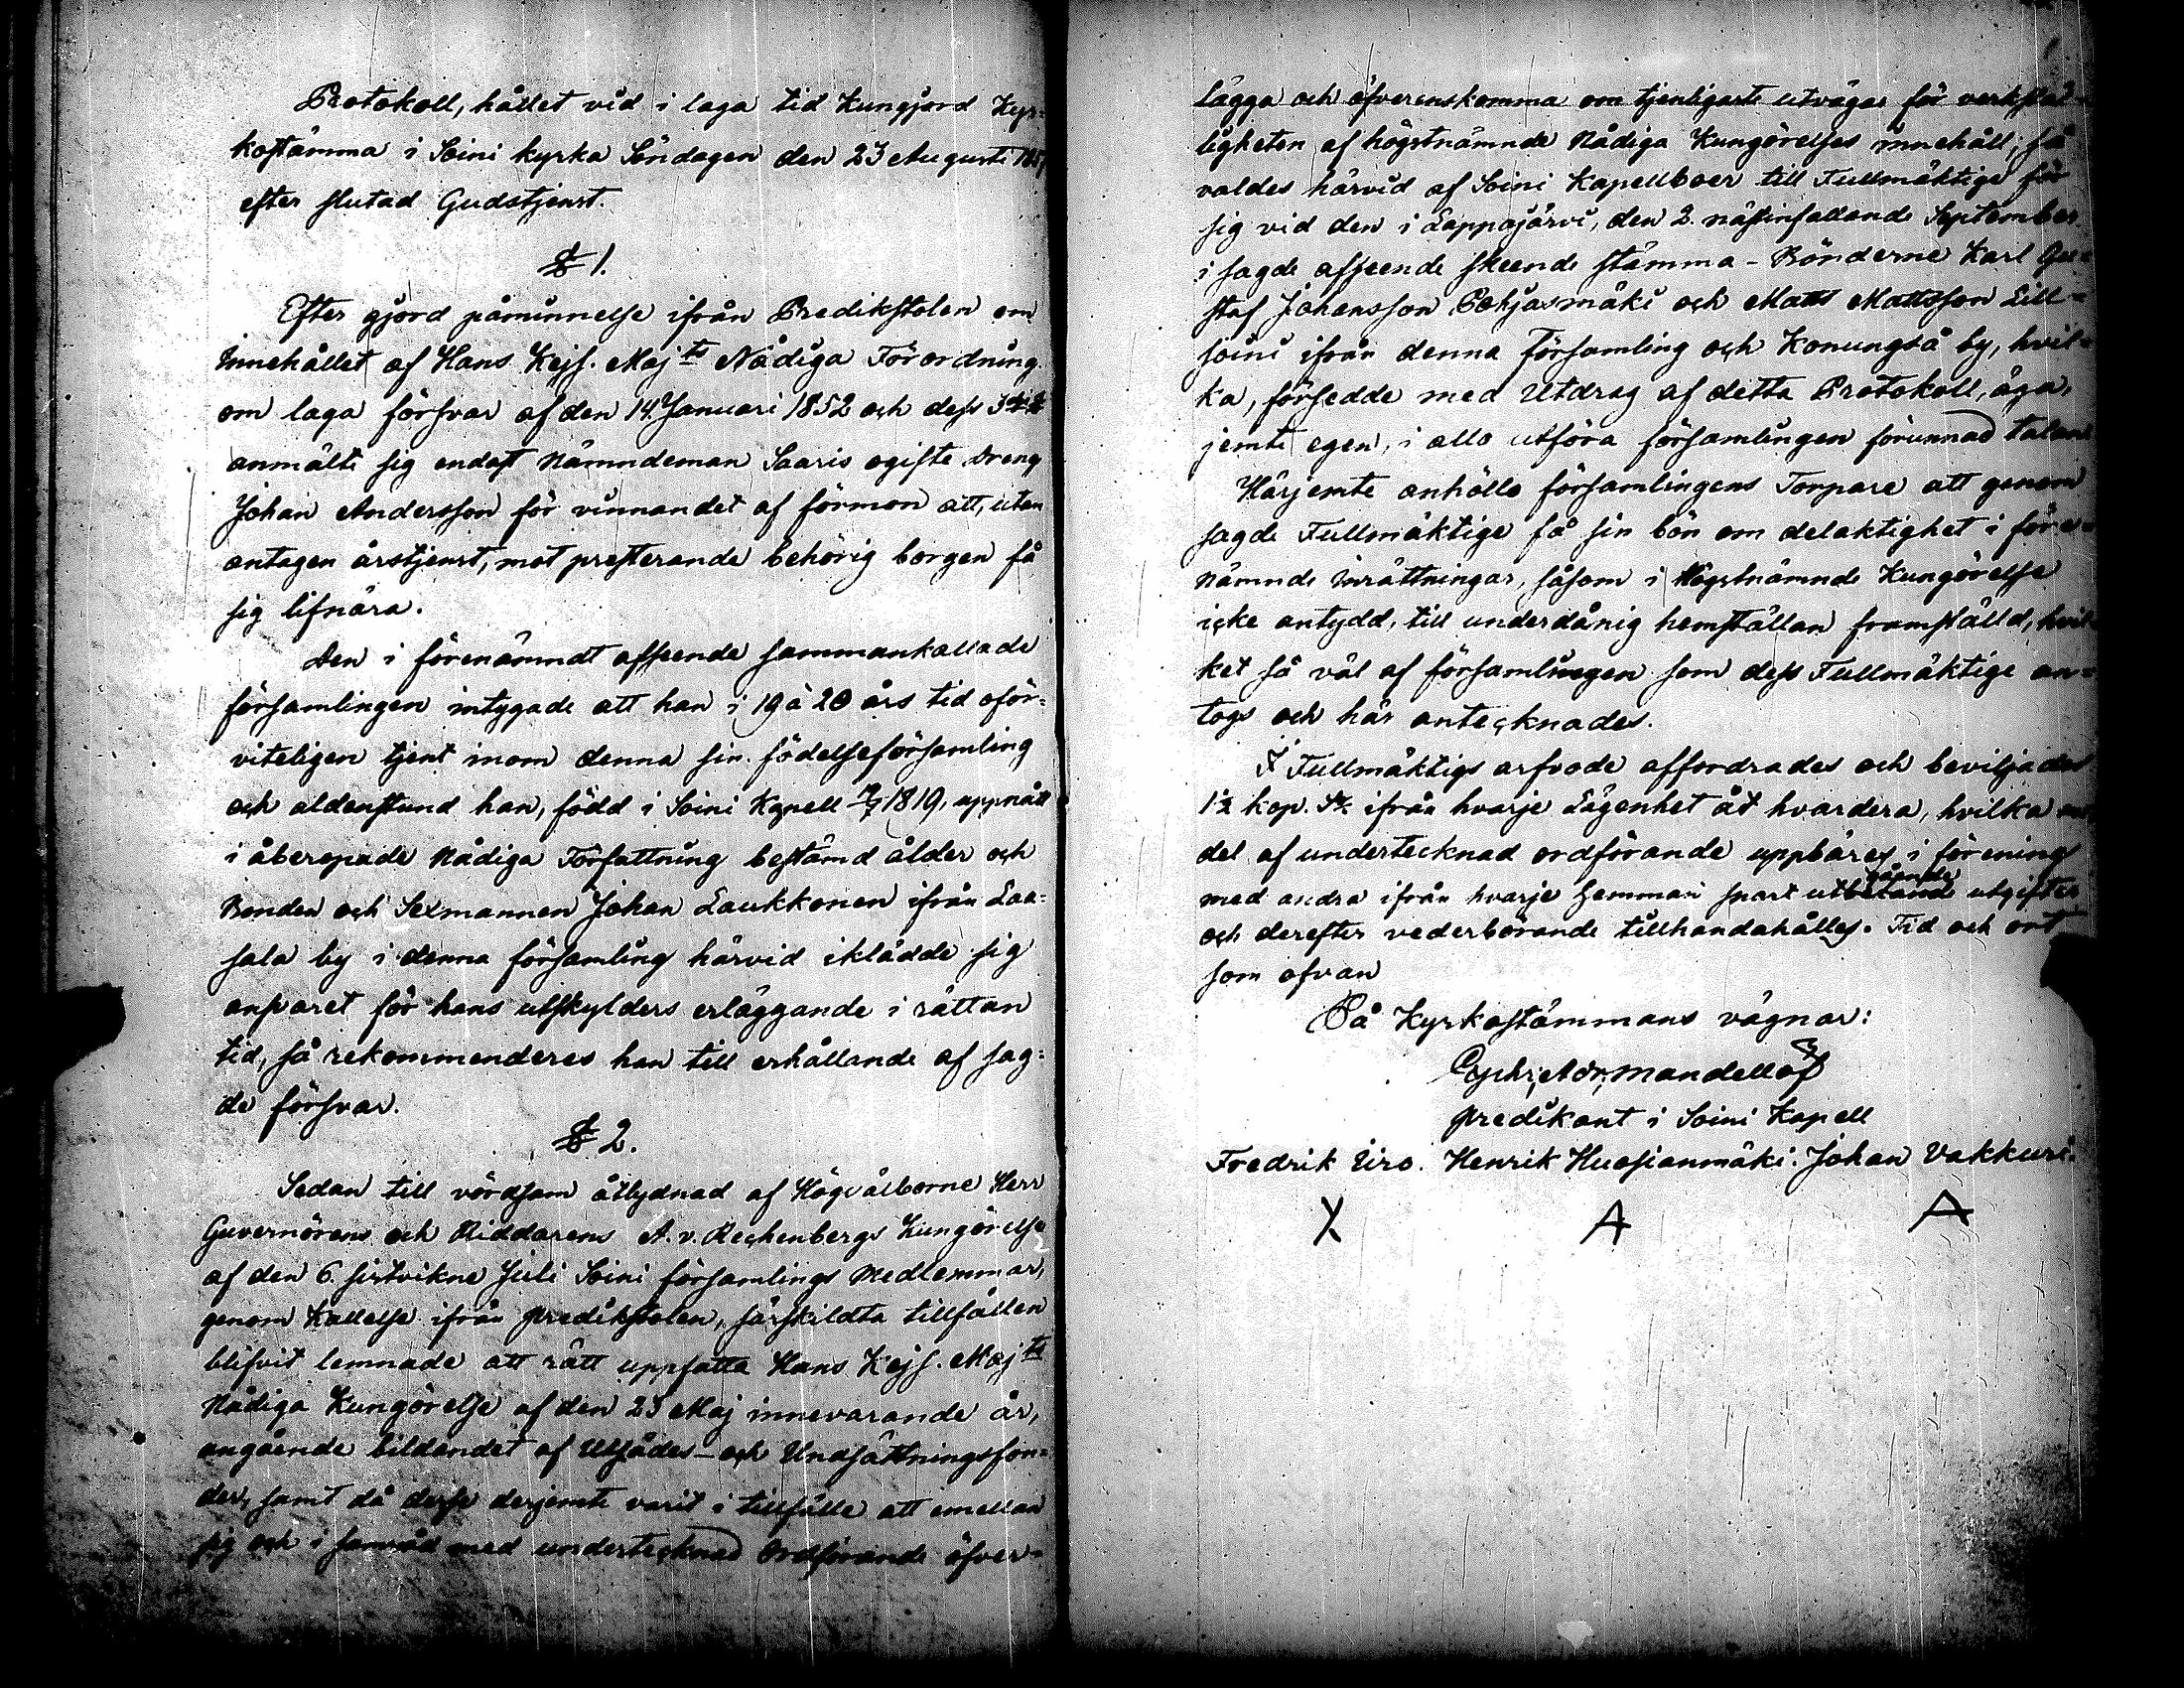 Protokoll, hållet vid i laga tid Kungjord Kyr=
kostämma i Soini kyrka Söndagen den 23 Augusti 1857
efter slutad Gudstjenst.
§ 1.
Efter gjord påminnelse ifrån Predikstolen om
innehållet af Hans Kejs. Maj:ts Nådiga Förordning
om laga försvar af den 14. Januari 1852 och dess 3
anmälte sig endast Nämndeman Saaris ogifte Dreng
Johan Andersson för vinnandet af förmon att, utan
antagen årstjenst, mot presterande behörig borgen få
sig lifnära.
Den i förenämndt afseende sammankallade
församlingen intygade att han i 19 à 20 års tid oför=
viteligen tjent inom denna sin födelseförsamling
och aldenstund han, född i Soini Kapell 1819, uppnått
i åberopade Nådiga Författning bestämd ålder och
Bonden och Sexmannen Johan Laukkonen ifrån Laa=
sala by i denna församling härvid iklädde sig
ansvaret för hans utskylders erläggande i rättan
tid, så rekommenderes han till erhållande af sag=
de försvar.
§ 2.
Sedan till vördsam åtlydnad af Högvälborne Herr
Guvernörens och Riddarens A. v. Rechenbergs Kungörelse
af den 6. sistvikne Juli Soini församlings Medlemmar,
genom Kallelse ifrån predikstolen, särskildta tillfällen
blifvit lemnade att rätt uppfatta Hans Kejs. Maj:ts
Nådiga Kungörelse af den 23 Maj innevarande år,
angående bildandet af Utsädes- och Undsättningsfon=
der, samt då desse derjemte varit i tillfälle att emellan
sig och i samråd med undertecknad Ordförande öfver=
lägga och öfverenskomma om tjenligaste utvägar för verkstäl=
ligheten af högstnämnde Nådiga Kungörelses innehåll; så
valdes härvid af Soini Kapellboer till Fullmäktige för
sig vid den i Lappajärvi, den 2. nästinfallande September
i sagde afseende skeende stämma - Bönderne Karl Gu=
staf Johansson Pohjasmäki och Matts Mattsson Lill=
soini ifrån denna församling och Konungså by, hvil=
ka, försedde med Utdrag af detta Protokoll, äga,
jemte egen, i allo utföra församlingen förunnad talan
Härjemte anhöllo församlingens Torpare att genom
sagde Fullmäktige få sin bön om delaktighet i före=
nämnde inrättningar, såsom i Högstnämnde Kungörelse
icke antydd, till underdånig hemställan framställd, hvil=
ket så väl af församlingen som dess Fullmäktige an=
togs och här antecknades.
I Fullmäktigs arfvode affordrades och beviljades
1½ kop. Sr. ifrån hvarje Lägenhet åt hvardera, hvilka
del af undertecknad ordförande uppbäres i förening
med andra ifrån hvarje hemman snart utgående utgifter
och derefter vederbörande tillhandahålles. Tid och ort
som ofvan
På Kyrkostämmans vägnar:
Mandellöf
predikant i Soini Kapell
Fredrik Uro. Henrik Huosianmäki. Johan Vakkuri.
X A A